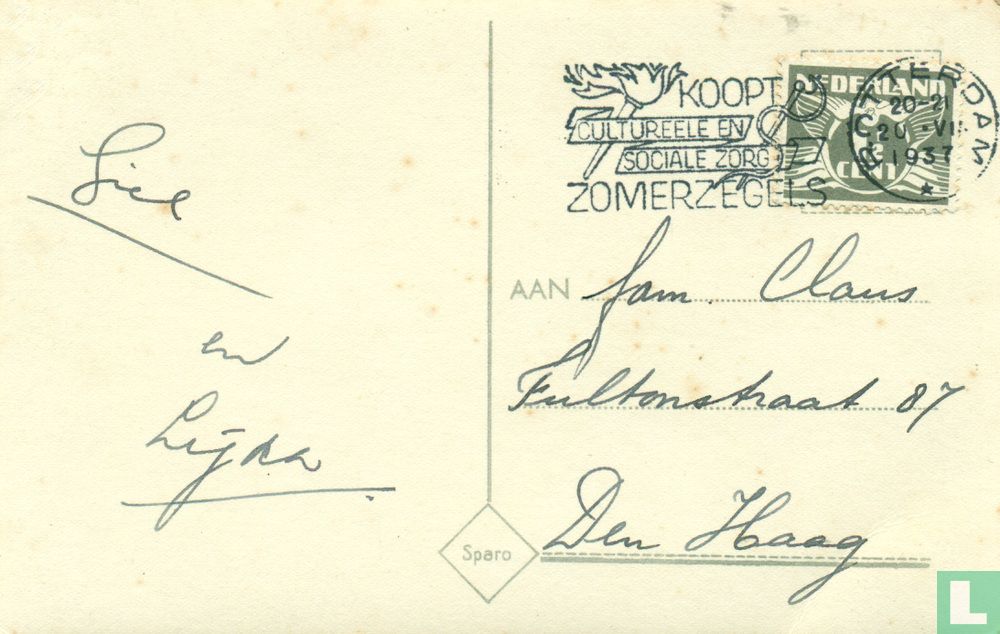 KOOPT
CULTUREELE EN
SOCIALE ZORG
ZOMERZEGELS
NEDERLAND
CENT
ROTTERDAM
20-21
20 · VII
1937
en
AAN Fam. Claus
Fultonstraat 87
Den Haag
Sparo
L